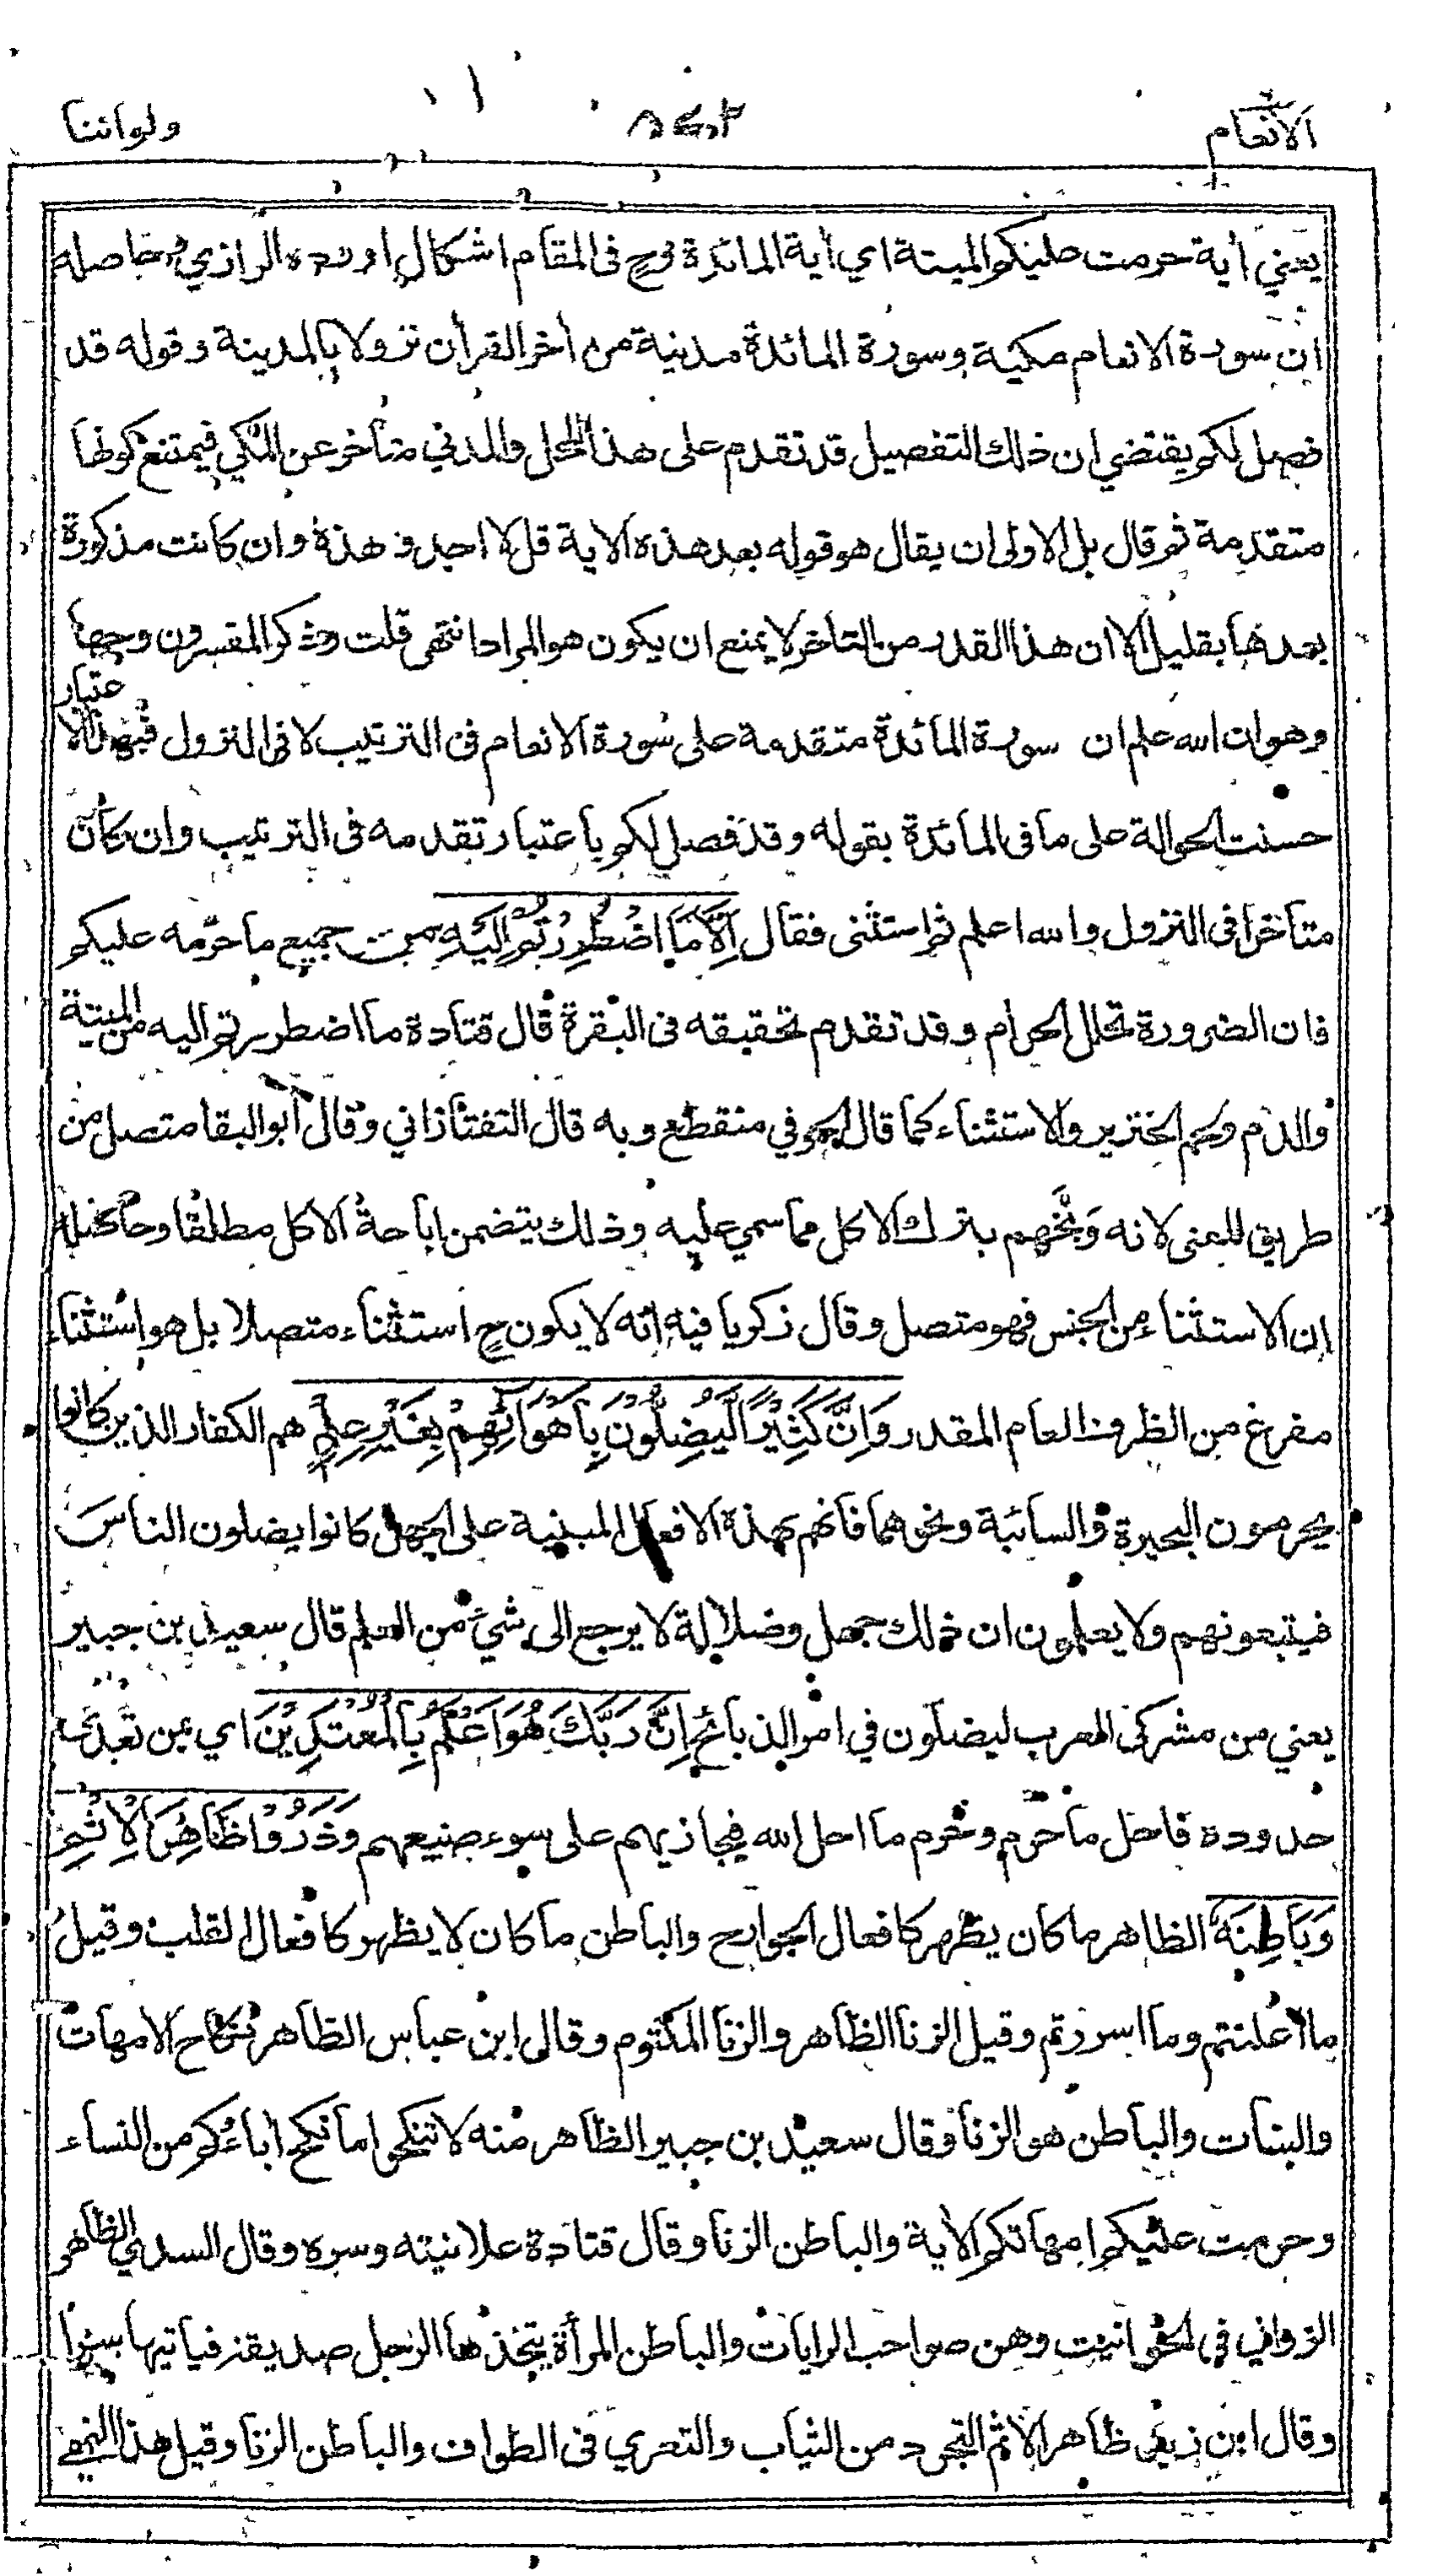 الانعام ولواننا
يعني أية حرمت عليكم الميتة اي أية المائدة وح فى المقام اشكال اورده الرازي وحاصله
ان سورة الانعام مكية وسورة المائدة مدنية من أخر القرأن نزولا بالمدينة وقوله قد
فصل لكم يقتضي ان ذلك التفصيل قد تقدم على هذا المحل والمدني متأخر عن المكي فيمتنع كونها
متقدمة ثم قال بل الاولى ان يقال هو قوله بعد هذه الاية قل لا اجد وهذه وان كانت مذكورة
بعدها بقليل الا ان هذا القدر من التاخر لا يمنع ان يكون هو المراد انتهى قلت وذكر المفسرون وجها
وهو ان الله علم ان سورة المائدة متقدمة على سورة الانعام فى الترتيب لا فى النزول فبهذا الاعتبار
حسنت الحوالة على ما فى المائدة بقوله وقد فصل لكم باعتبار تقدمه فى الترتيب وان كان
متأخرا فى النزول والله اعلم ثم استثنى فقال اِلَّا مَا اضْطُرِرْتُمْ اِلَيْهِ من جميع ما حرّمه عليكم
فان الضرورة تحلل الحرام وقد تقدم تحقيقه فى البقرة قال قتادة ما اضطررتم اليه من الميتة
والدم ولحم الخنزير والاستثناء كما قال الحوفي منقطع وبه قال التفتازاني وقال أبو البقا متصل من
طريق المعنى لانه وَبَّخهم بترك الاكل مما سمي عليه وذلك يتضمن اباحة الاكل مطلقا وحاصله
ان الاستثناء من الجنس فهو متصل وقال زكريا فيه انه لا يكون ح استثناء متصلا بل هو استثناء
مفرغ من الظرف العام المقدر وَاِنَّ كَثِيْرًا لَّيُضِلُّوْنَ بِاَهْوَائِهِمْ بِغَيْرِ عِلْمٍ هم الكفار الذين كانوا
يحرمون البحيرة والسائبة ونحوهما فانهم بهذه الافعال المبنية على الجهل كانوا يضلون الناس
فيتبعونهم ولا يعلمون ان ذلك جهل وضلالة لا يرجع الى شيء من العلم قال سعيد بن جبير
يعني من مشركى العرب ليضلون في امر الذبائح اِنَّ رَبَّكَ هُوَ اَعْلَمُ بِالْمُعْتَدِيْنَ اي بمن تعدى
حدوده فاحل ما حرّم وحرم ما احل الله فيجازيهم على سوء صنيعهم وَذَرُوْا ظَاهِرَ الْاِثْمِ
وَبَاطِنَهٗ الظاهر ما كان يظهر كافعال الجوارح والباطن ما كان لا يظهر كافعال القلب وقيل
ما اعلنتم وما اسررتم وقيل الزنا الظاهر والزنا المكتوم وقال ابن عباس الظاهر نكاح الامهات
والبنات والباطن هو الزنا وقال سعيد بن جبير الظاهر منه لا تنكحوا ما نكح اباءكم من النساء
وحرمت عليكم امهاتكم الأية والباطن الزنا وقال قتادة علانيته وسره وقال السدي الظاهر
الزواني في الحوانيت وهن صواحب الرايات والباطن المرأة يتخذها الرجل صديقة فياتيها سرا
وقال ابن زيد ظاهر الاثم التجرد من الثياب والتعري فى الطواف والباطن الزنا وقيل هذا النهي